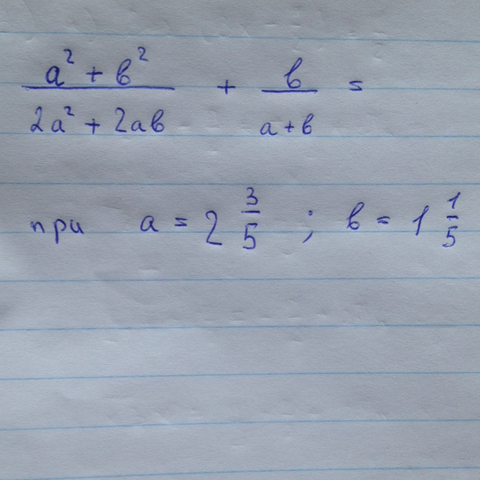 a² + b² / 2a² + 2ab + b / a + b =
при a = 2 3/5 ; b = 1 1/5